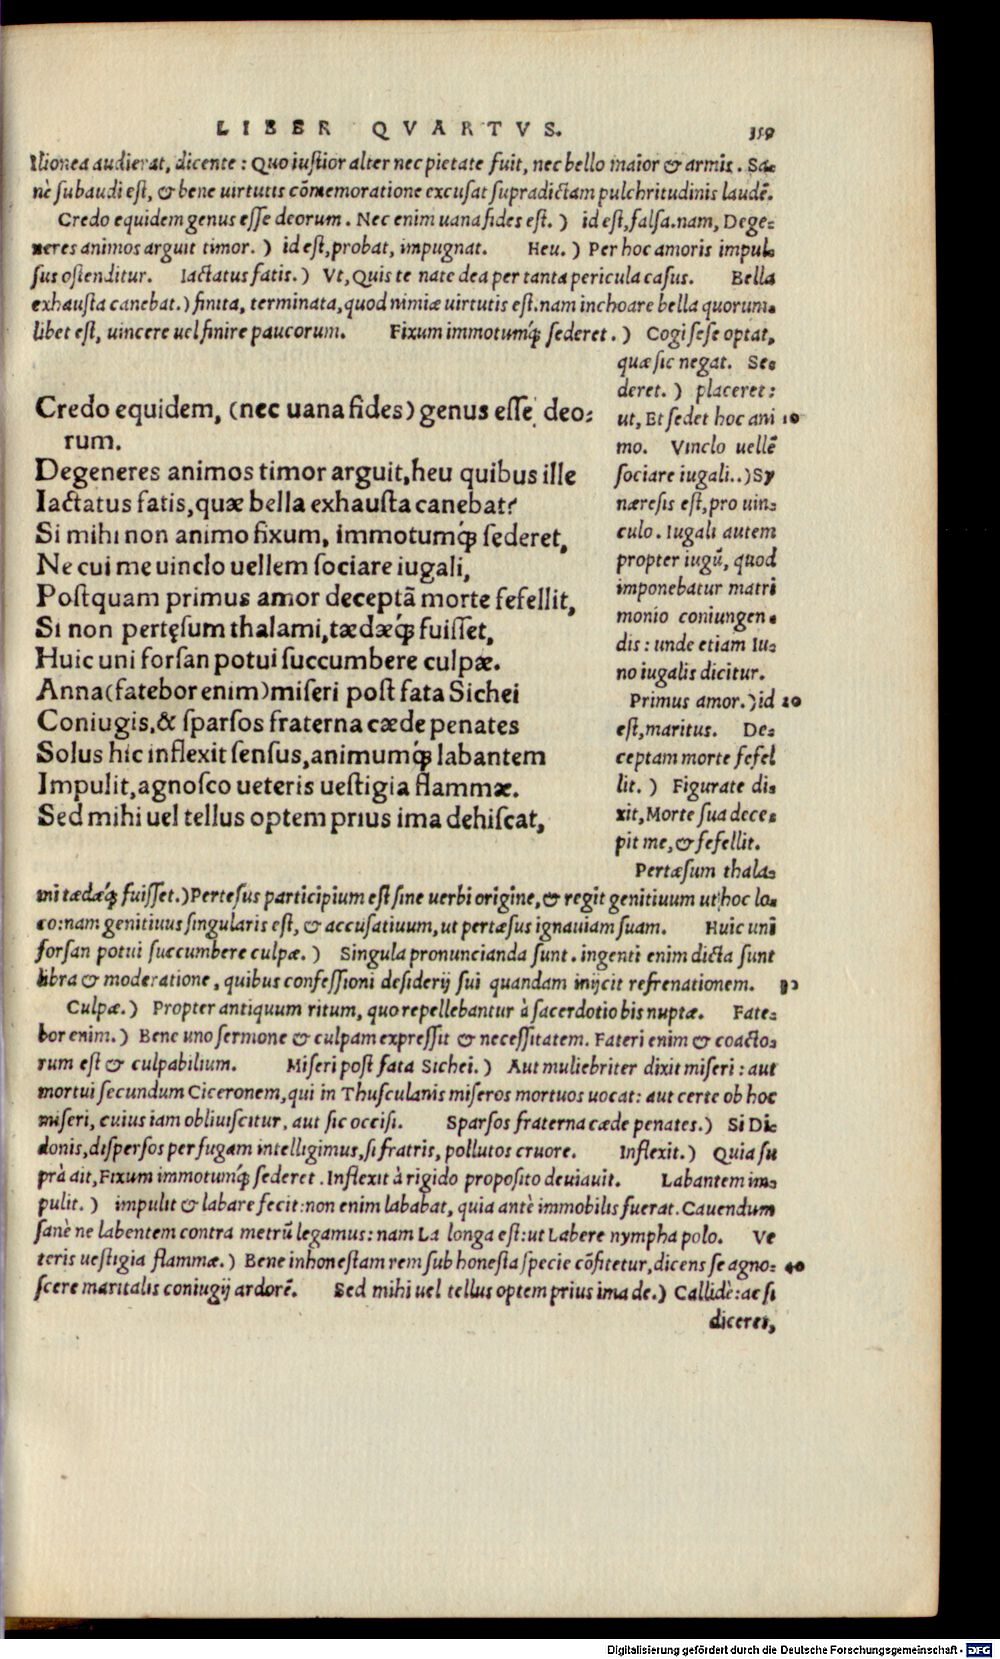 LIBER QVARTVS. 359
Ilionea audierat, dicente: Quo iustior alter nec pietate fuit, nec bello maior & armis. Sa-
nè subaudi est, & bene uirtutis cõmemoratione excusat supradictam pulchritudinis laudẽ.
Credo equidem genus esse deorum. Nec enim uana fides est.) id est, falsa. nam, Dege-
neres animos arguit timor.) id est, probat, impugnat. Heu.) Per hoc amoris impul-
sus ostenditur. Iactatus fatis.) Vt, Quis te nate dea per tanta pericula casus. Bella
exhausta canebat.) finita, terminata, quod nimiæ uirtutis est. nam inchoare bella quorum-
libet est, uincere uel finire paucorum. Fixum immotumq́; sederet.) Cogi sese optat,
quæ sic negat. Se-
deret.) placeret:
ut, Et sedet hoc ani 10
mo. Vinclo uellẽ
sociare iugali..) Sy
næresis est, pro uin-
culo. Iugali autem
propter iugũ, quod
imponebatur matri
monio coniungen-
dis: unde etiam Iu-
no iugalis dicitur.
Primus amor.) id 20
est, maritus. De-
ceptam morte fefel
lit.) Figurate di-
xit, Morte sua dece-
pit me, & fefellit.
Pertæsum thala-
Credo equidem, (nec uana fides) genus esse deo-
rum.
Degeneres animos timor arguit, heu quibus ille
Iactatus fatis, quæ bella exhausta canebat?
Si mihi non animo fixum, immotumq́; sederet,
Ne cui me uinclo uellem sociare iugali,
Postquam primus amor deceptã morte fefellit,
Si non pertęsum thalami, tædæq́; fuisset,
Huic uni forsan potui succumbere culpæ.
Anna (fatebor enim) miseri post fata Sichei
Coniugis, & sparsos fraterna cæde penates
Solus hic inflexit sensus, animumq́; labantem
Impulit, agnosco ueteris uestigia flammæ.
Sed mihi uel tellus optem prius ima dehiscat,
mi tædæq́; fuisset.) Pertesus participium est sine uerbi origine, & regit genitiuum ut hoc lo-
co: nam genitiuus singularis est, & accusatiuum, ut pertæsus ignauiam suam. Huic uni
forsan potui succumbere culpæ.) Singula pronuncianda sunt. ingenti enim dicta sunt
libra & moderatione, quibus confessioni desiderij sui quandam inijcit refrenationem. 30
Culpæ.) Propter antiquum ritum, quo repellebantur à sacerdotio bis nuptæ. Fate-
bor enim.) Bene uno sermone & culpam expressit & necessitatem. Fateri enim & coacto-
rum est & culpabilium. Miseri post fata Sichei.) Aut muliebriter dixit miseri: aut
mortui secundum Ciceronem, qui in Thusculanis miseros mortuos uocat: aut certe ob hoc
miseri, cuius iam obliuiscitur, aut sic occisi. Sparsos fraterna cæde penates.) Si Di-
donis, dispersos per fugam intelligimus, si fratris, pollutos cruore. Inflexit.) Quia su
prà ait, Fixum immotumq́; sederet. Inflexit à rigido proposito deuiauit. Labantem im-
pulit.) impulit & labare fecit: non enim lababat, quia antè immobilis fuerat. Cauendum
sanè ne labentem contra metrũ legamus: nam La longa est: ut Labere nympha polo. Ve
teris uestigia flammæ.) Bene inhonestam rem sub honesta specie cõfitetur, dicens se agno- 40
scere maritalis coniugij ardorẽ. Sed mihi uel tellus optem prius ima de.) Callidè: ac si
diceret,
Digitalisierung gefördert durch die Deutsche Forschungsgemeinschaft - DFG